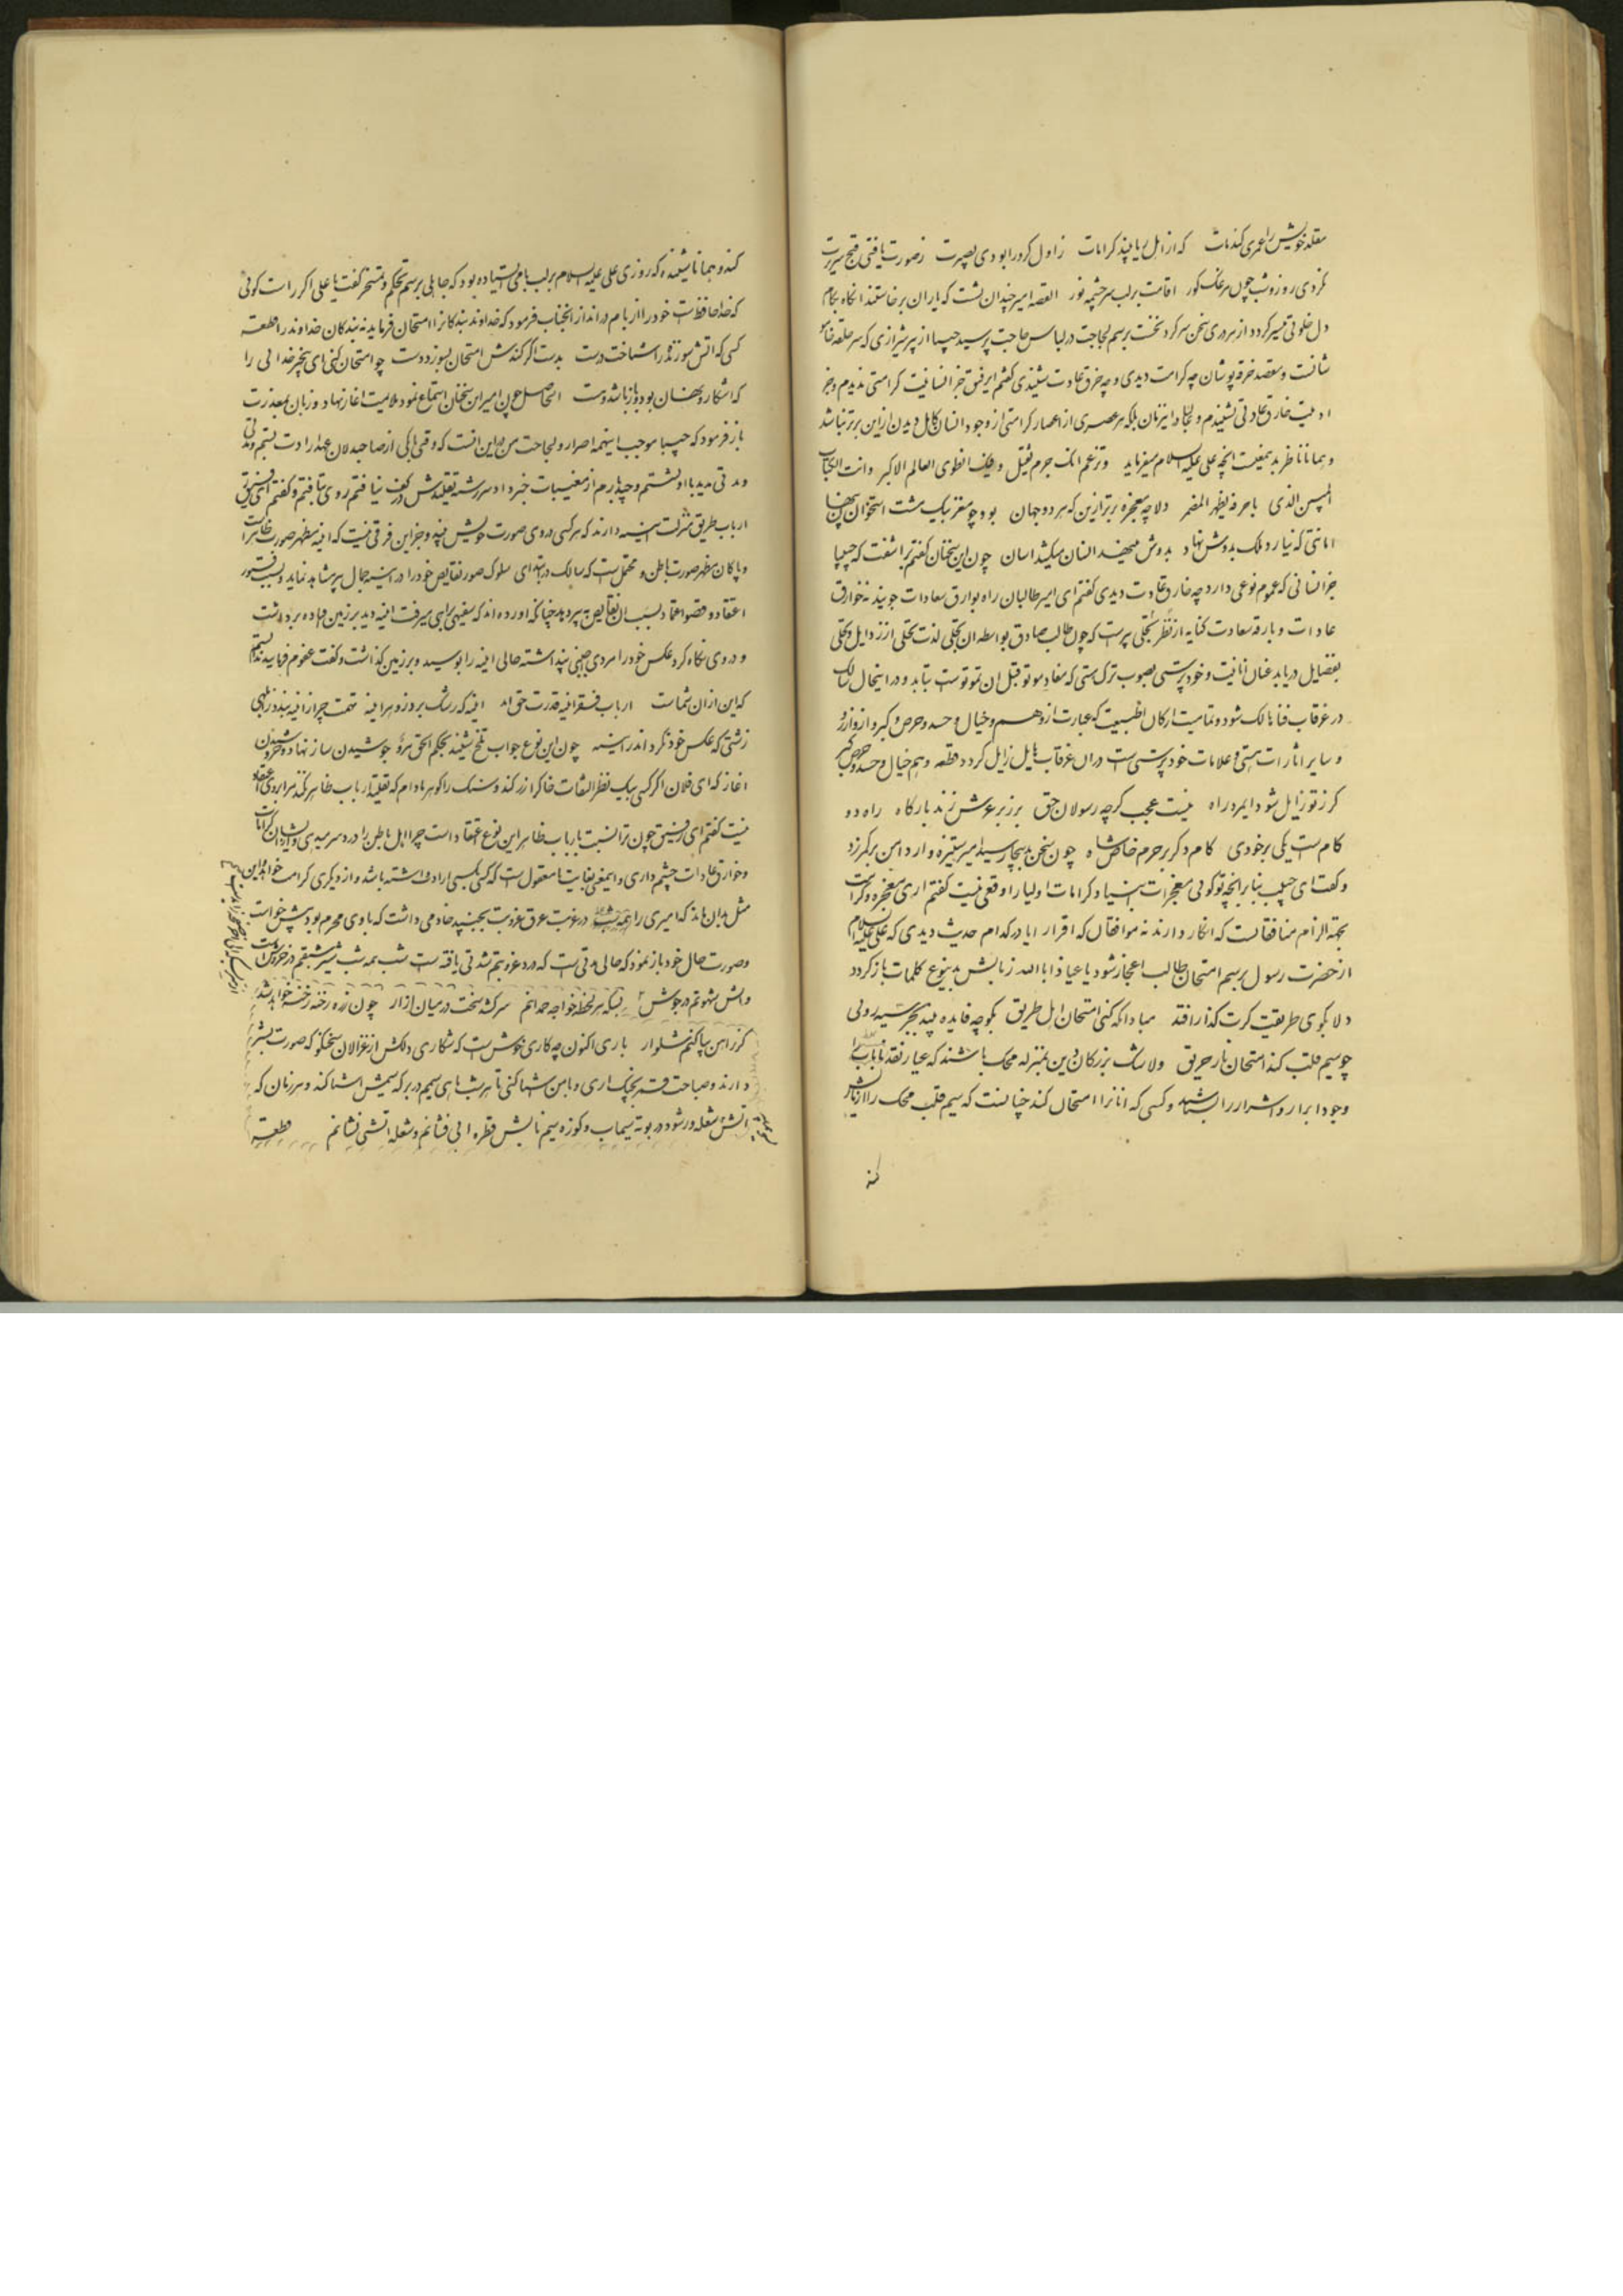 مقلد خویش را عمری کند مات که از اهل ریا بیند کرامات ز اول کرد را بودی بصیرت ز صورت یافتی قبح سریرت
نکردی روز و شب چون مرغک کور اقامت بر لب سرچشمه نور القصه امیر چندان نشست که یاران برخاستند انکاه بکام
دل خلوتی میسر کردد از هر دری سخن سر کرد نخست برسم لجاجت در لباس حاجت پرسید حبیبا از پیر شیرازی که سر حلقه
شانست و مقصد خرقه پوشان چه کرامت دیدی و چه خرق عادت شنیدی گفتم ای رفیق جز انسانیت کرامتی ندیدم و جز
ادمیت خارق عادتی نشنیدم و نه تنها در این زمان بلکه هر عصری از اعصار کرامتی از وجود انسان کامل دیدن ازین برتر نباشد
و همانا ناظر بدین معنیست انچه علی علیه السلام میفرماید وتزعم انک جرم ثقیل وفیک انطوی العالم الاکبر وانت الکتاب
المبین الذی باحرفه یظهر المضمر دلا چه معجزه برتر ازین که هر دو جهان بود چو مغز بیک مشت استخوان پنهان
امانتی که نیارد فلک بدوش نهاد بدوش مینهد انسان میکشد اسان چون این سخنان گفتم برآشفت که حبیبا
جز انسانی که عموم نوعی دارد چه خارق عادت دیدی گفتم ای امیر طالبان راه بوارق سعادات جویند نه خوارق
عادات و بارقه سعادت کنایه از نظر تجلی پیر است که چون طالب صادق بواسطه ان تجلی لذت تخلی از رذایل و تحلی
بفضایل دریابد عنان انانیت و خودپرستی بصوب ترک هستی که مفاد موتوا قبل ان تموتوست بتابد و در اینحال سالک
در غرقاب فنا هالک شود و تمامیت ارکان طبیعت که عبارت از وهم و خیال و حسد و حرص و کبر و از و ارزو
و سایر اثارات هستی و علامات خودپرستی است دران غرقاب هایل زایل کردد قطعه وهم خیال و حسد و حرص و کبر
کر ز تو زایل شود ای مرد راه نیست عجب کرچه رسولان حق بر زبر عرش زند بارکاه راه دو
کام است یکی بر خودی کام دکر بر حرم خاص شاه چون سخن بدینجا رسید امیر ستیزه وار دامن بر کمر زد
و گفت ای حبیب بنابر انچه تو کویی معجزات انبیا و کرامات اولیا را وقعی نیست گفتم اری معجزه و کرامت
بجهة الزام منافقانست که انکار دارند نه موافقان که اقرار ایا در کدام حدیث دیدی که علی علیه السلام
از حضرت رسول برسم امتحان طالب اعجاز شود یا عیاذا بالله زبانش بدینوع کلمات باز کردد
دلا بکوی طریقت کرت کذار افتد مبادا که کنی امتحان اهل طریق بکو چه فایده بیند بجز سیه رویی
چو سیم قلب کند امتحان نار حریق ولاشک بزرکان دین بمنزله محک باشند که عیار نقد ناب
وجود ابرار و اشرار را شناسند و کسی که انانرا امتحان کند چنانست که سیم قلب محک را ازمایش
کند
کند و همانا نشنیده که روزی علی علیه السلام بر لب بامی ایستاده بود که جاهلی برسم تحکم و تمسخر گفت یا علی اکر راست کویی
که خدا حافظ است خود را از بام در انداز انجناب فرمود که خداوند بندکانرا امتحان فرماید نه بندکان خداوند را قطعه
کسی که اتش سوزنده را شناخت درست بدست اکر کندش امتحان بسوزد دست چو امتحان کنی ای بیخبر خدایی را
که اشکار و نهان بود و باز باشد و هست الحاصل چون امیر این سخنان استماع نمود ملامیت اغاز نهاد و زبان بمعذرت
باز فرمود که حبیبا موجب اینهمه اصرار و لجاجت من این است که وقتی بایکی از صاحبدلان عهد ارادت بستم
و مدتی مدید با او نشستم و چند بارم از مغیبات خبر داد سررشته تقلیدش در کف نیافتم روی بتافتم و گفتم ای رفیق
ارباب طریق منزلت آیینه دارند که هر کسی در وی صورت خویش بیند و جز این فرقی نیست که اینه مظهر صورت ظاهر است
و پاکان مظهر صورت باطن و محتمل است که سالک در ابتدای سلوک صور نقایص خود را در ایینه جمال پیر مشاهده نماید و بسبب فتور
اعتقاد و قصور اعتماد نسبت ان نقایص به پیر دهد چنانکه اورده اند که سفیهی براهی میرفت اینه دید بر زمین افتاده برداشت
و در وی نکاه کرد عکس خود را مردی اجنبی پنداشته حالی اینه را بوسید و بر زمین کذاشت و گفت عفوم فرمایید ندانستم
که این از ان شماست ارباب فقر اینه قدرت حق اند اینه که رشک برد زو هر اینه تهمت چرا ز اینه بندد ز ابلهی
زشتی که عکس خود نکرد اندر اینه چون این نوع جواب تلخ شنید بحکم الحق مر جوشیدن ساز نهاد و خروشیدن
اغاز که ای فلان اکر کسی بیک نظر التفات خاک را زر کند و سنک را کوهر مادام که تقلید ارباب ظاهر نکند مرا بر وی اعتقاد
نیست گفتم ای رفیق چون ترا نسبت بارباب ظاهر این نوع اعتقاد است چرا اهل باطن را دردسر میدهی و از ایشان کرامات
و خوارق عادات چشم داری و اینمعنی بغایت نامعقول است که کسی بکسی ارادت داشته باشد و از دیکری کرامت خواهد و این
مثل بدان ماند که امیری را همه شب در غربت عرق عزوبت بجنبید خادمی داشت که با وی محرم بود پیش خواست
و صورت حال خود باز نمود که حالی مدتی است که درد عزوبتم شدتی یافته است شب همه شب شیر شبقم در خروش است
و اتش شهوتم در جوش بسکه هر لحظه خواجه حمدانم سر کشد سخت در میان ازار چون زره رخنه رخنه خواهد شد
کر ز اهن بپا کنم شلوار باری اکنون چه کاری خوش است که شکاری دلکش از غزالان سخنکو که صورت بشر
دارند و صباحت قمر بچنک اری و با من اشنا کنی تا هر شب ماهی سیمم در برکه سیمش اشنا کند و هر زمان که
اتش شعله ور شود در بوته سیماب و کوزه سیم نابش قطره ابی فشانم و شعله اتشی نشانم قطعه